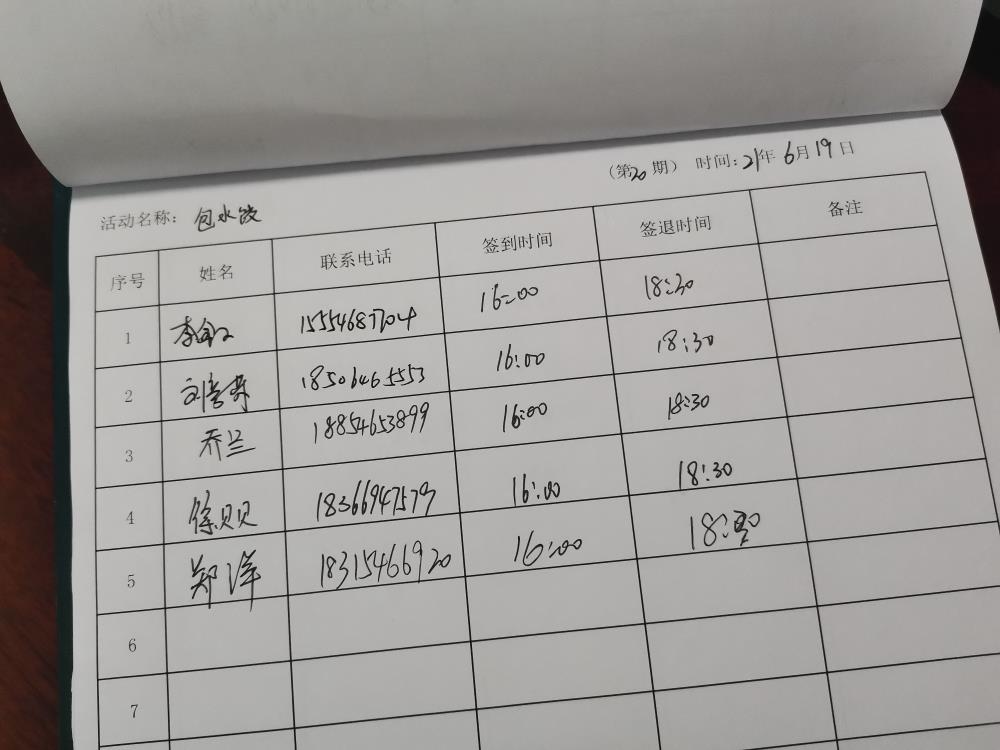 (第20期) 时间:21年6月19日
活动名称: 包水饺
序号 姓名 联系电话 签到时间 签退时间 备注
1 15554687704 16:00 18:30
2 18506465553 16:00 18:30
3 乔兰 18854653899 16:00 18:30
4 徐贝贝 18366947579 16:00 18:30
5 郑洋 18315466920 16:00 18:30
6
7